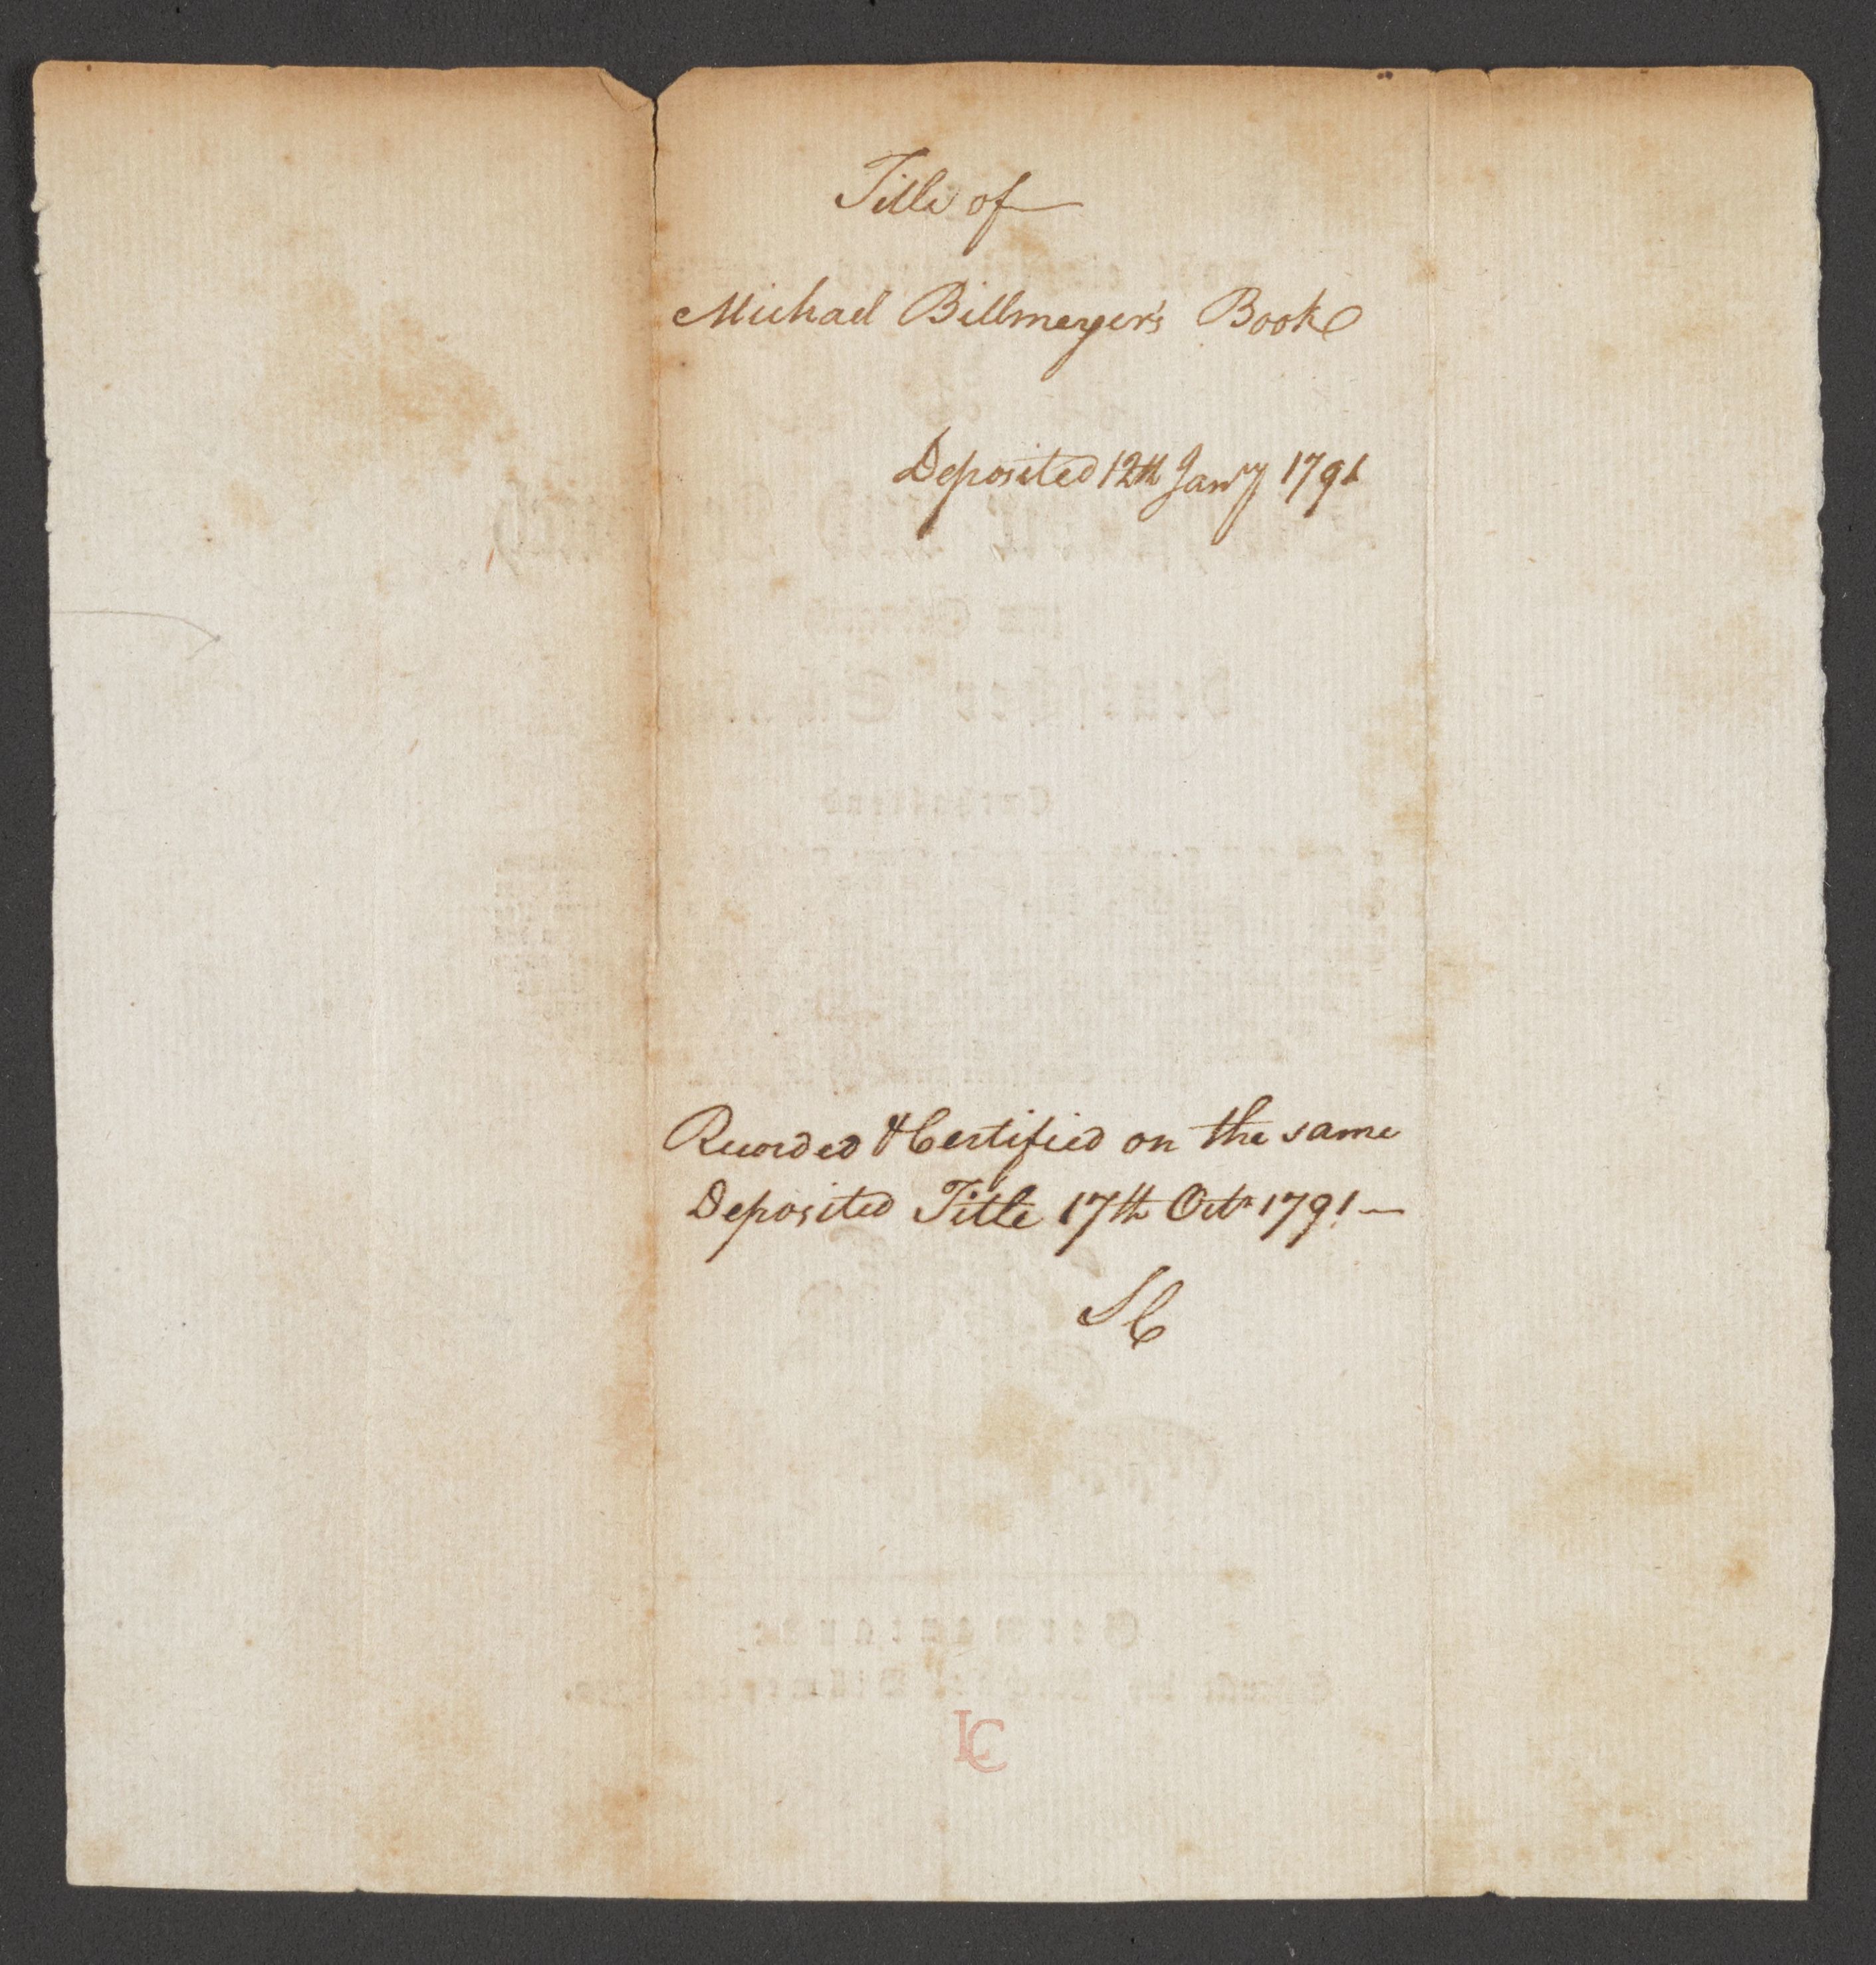 Title of
Michael Billmeyer's Book
Deposited 12th Jany 1791
Recorded & Certified on the same
Deposited Title 17th Octr 1791 —
SC
LC